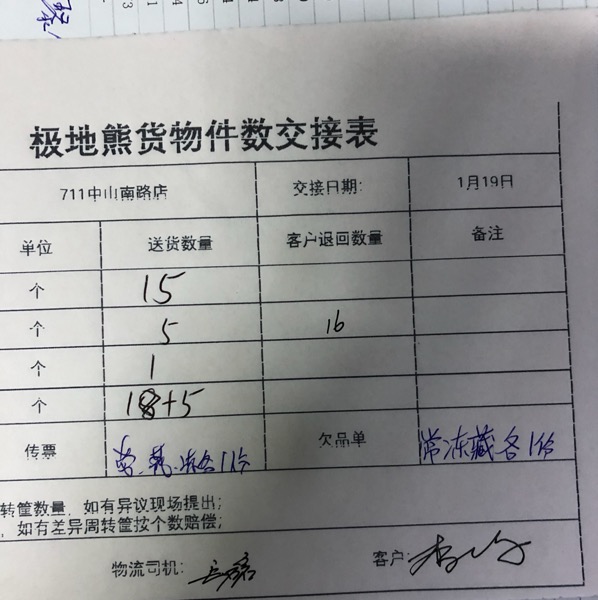 极地熊货物件数交接表
711中山南路店 交接日期: 1月19日
单位 送货数量 客户退回数量 备注
个 15
个 5 16
个 1
个 18+5
传票 各1份 欠品单 常冻藏各1份
转筐数量,如有异议现场提出;
,如有差异周转筐按个数赔偿;
物流司机: 客户: